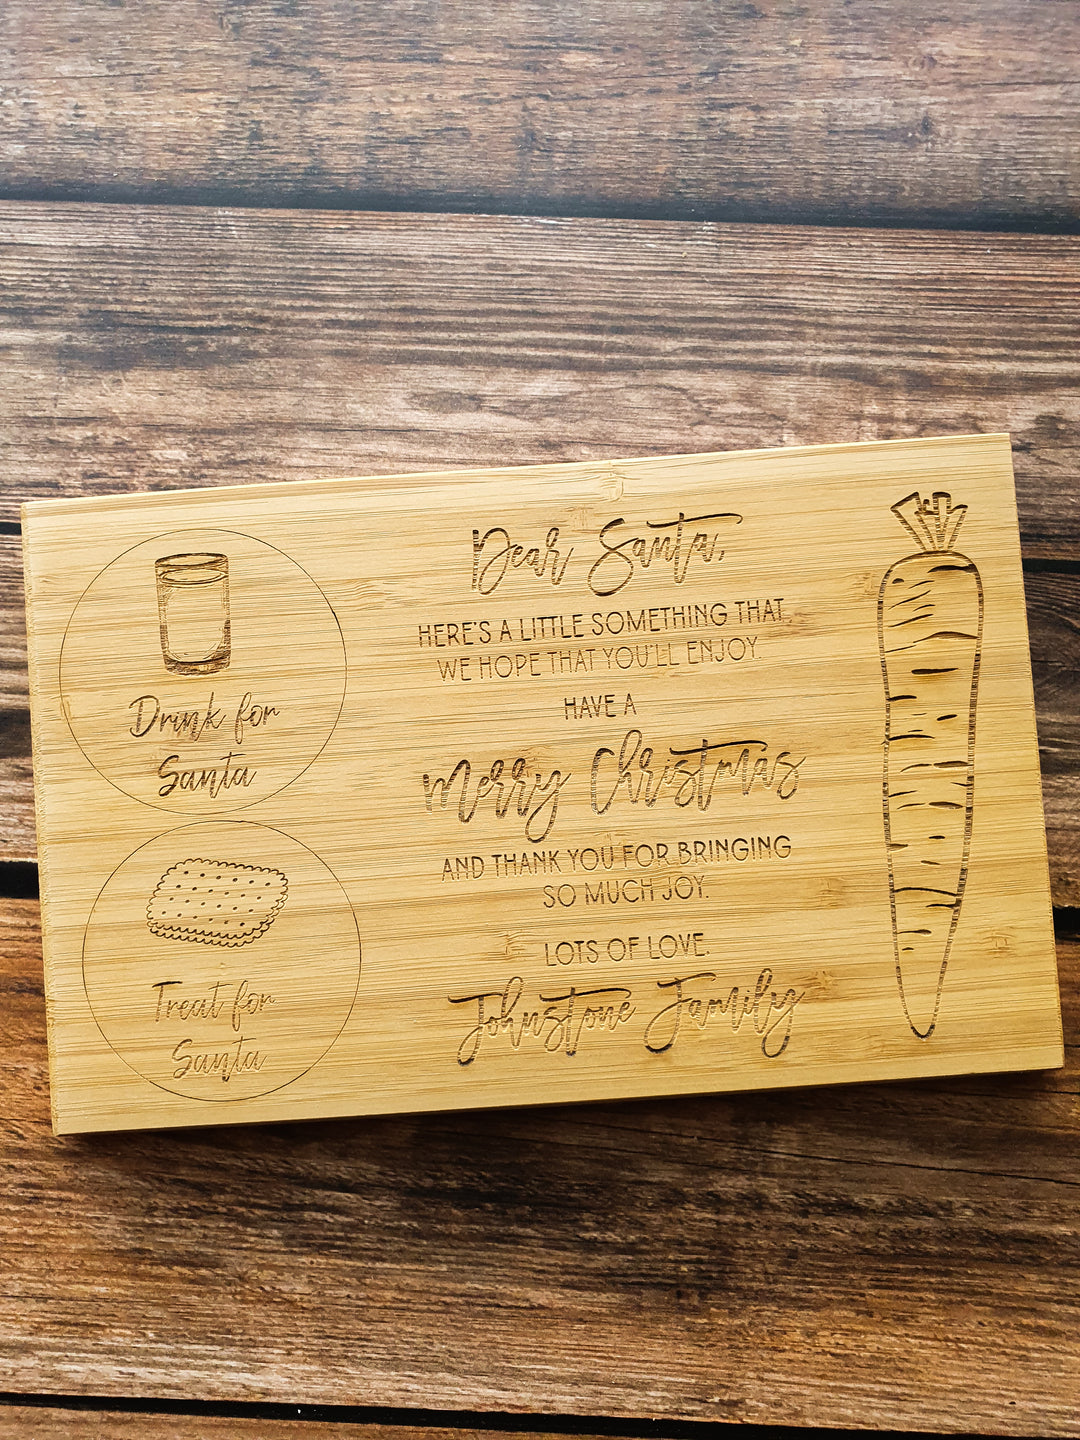 Drink for
Santa
Treat for
Santa
Dear Santa,
HERE'S A LITTLE SOMETHING THAT
WE HOPE THAT YOU'LL ENJOY.
HAVE A
Merry Christmas
AND THANK YOU FOR BRINGING
SO MUCH JOY.
LOTS OF LOVE.
Johnstone Family